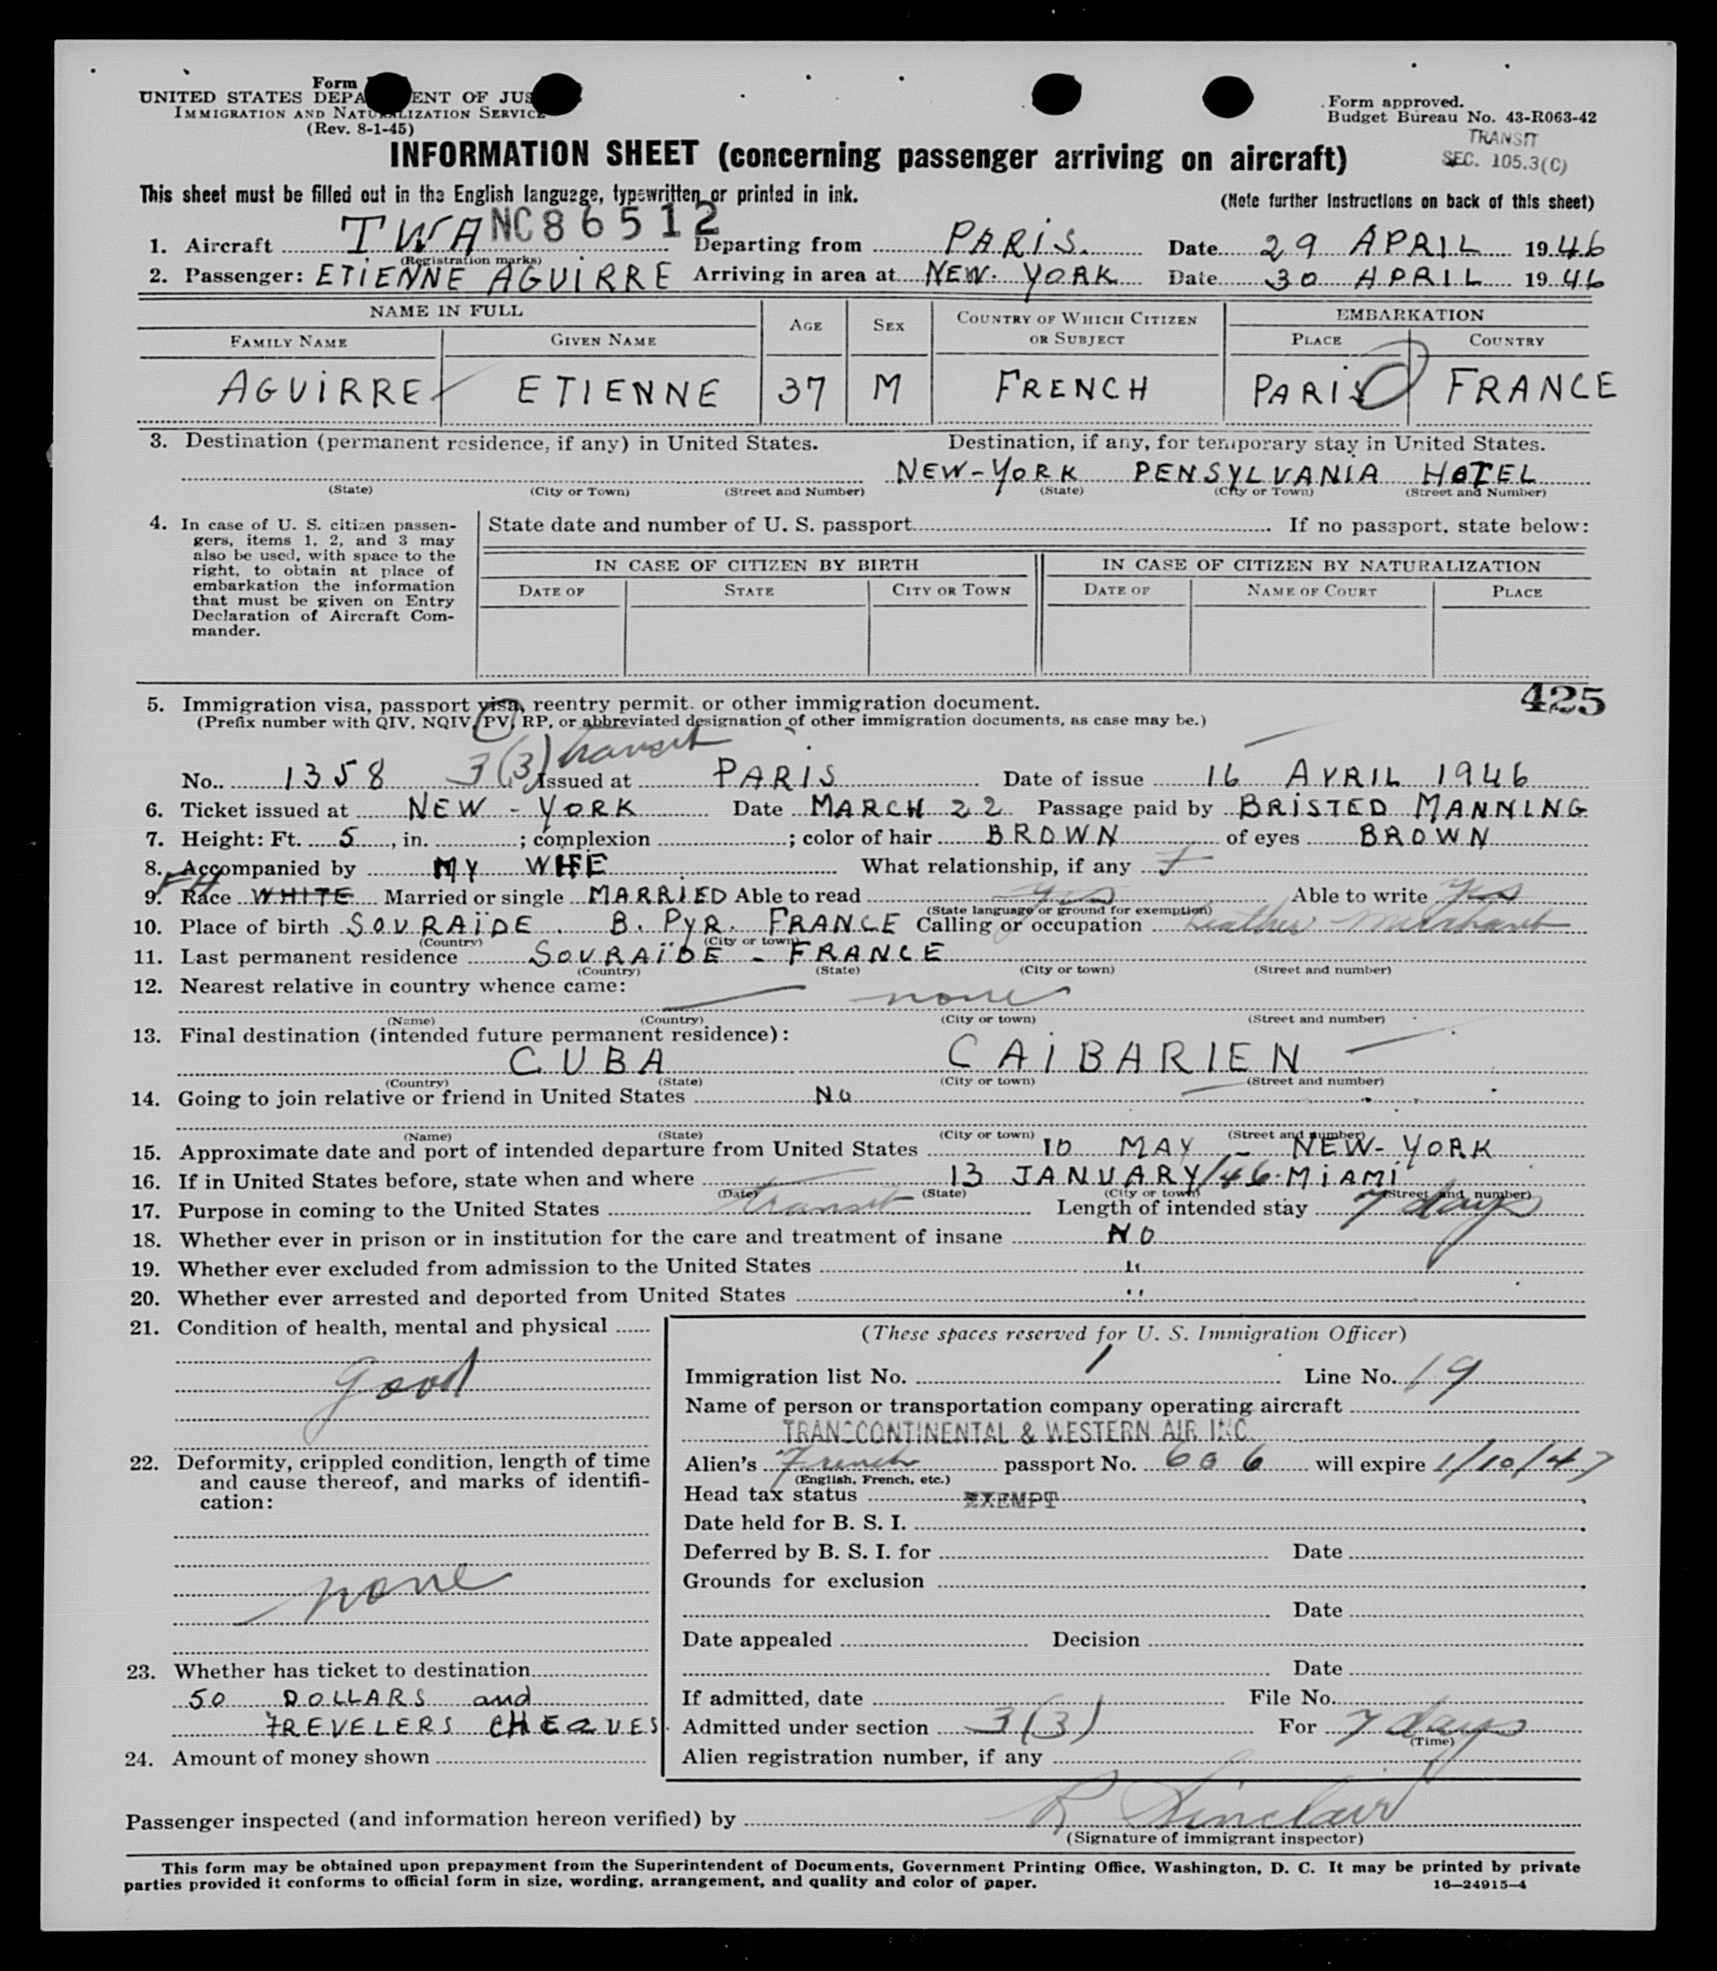 Form
UNITED STATES DEPA ENT OF JUS
IMMIGRATION AND NATURALIZATION SERVICE
(Rev. 8-1-45)
Form approved.
Budget Bureau No. 43-R063-42
TRANSIT
SEC. 105.3(C)
INFORMATION SHEET (concerning passenger arriving on aircraft)
This sheet must be filled out in the English language, typewritten or printed in ink.
(Note further instructions on back of this sheet)
1. Aircraft TWA NC86512 Departing from PARIS. Date 29 APRIL 1946
(Registration marks)
2. Passenger: ETIENNE AGUIRRE Arriving in area at NEW. YORK Date 30 APRIL 1946
NAME IN FULL AGE SEX COUNTRY OF WHICH CITIZEN OR SUBJECT EMBARKATION
FAMILY NAME GIVEN NAME PLACE COUNTRY
AGUIRRE ETIENNE 37 M FRENCH PARIS FRANCE
3. Destination (permanent residence, if any) in United States. Destination, if any, for temporary stay in United States.
NEW-YORK PENSYLVANIA HOTEL
(State) (City or Town) (Street and Number) (State) (City or Town) (Street and Number)
4. In case of U. S. citizen passengers, items 1, 2, and 3 may also be used, with space to the right, to obtain at place of embarkation the information that must be given on Entry Declaration of Aircraft Commander.
State date and number of U. S. passport If no passport, state below:
IN CASE OF CITIZEN BY BIRTH IN CASE OF CITIZEN BY NATURALIZATION
DATE OF STATE CITY OR TOWN DATE OF NAME OF COURT PLACE
425
5. Immigration visa, passport visa, reentry permit, or other immigration document.
(Prefix number with QIV, NQIV, PV, RP, or abbreviated designation of other immigration documents, as case may be.)
No. 1358 3(3) transit Issued at PARIS Date of issue 16 AVRIL 1946
6. Ticket issued at NEW-YORK Date MARCH 22 Passage paid by BRISTED MANNING
7. Height: Ft. 5, in. ; complexion ; color of hair BROWN of eyes BROWN
8. Accompanied by MY WIFE What relationship, if any
FH
9. Race WHITE Married or single MARRIED Able to read yes Able to write yes
(State language or ground for exemption)
10. Place of birth SOURAÏDE . B. PYR. FRANCE Calling or occupation Leather Merchant
(Country) (City or town)
11. Last permanent residence SOURAÏDE - FRANCE
(Country) (State) (City or town) (Street and number)
12. Nearest relative in country whence came:
none
(Name) (Country) (City or town) (Street and number)
13. Final destination (intended future permanent residence):
CUBA CAIBARIEN
(Country) (State) (City or town) (Street and number)
14. Going to join relative or friend in United States No
(Name) (State) (City or town) (Street and number)
15. Approximate date and port of intended departure from United States 10 MAY - NEW-YORK
16. If in United States before, state when and where 13 JANUARY/46. MIAMI
(Date) (State) (City or town) (Street and number)
17. Purpose in coming to the United States transit Length of intended stay 7 days
18. Whether ever in prison or in institution for the care and treatment of insane NO
19. Whether ever excluded from admission to the United States "
20. Whether ever arrested and deported from United States "
21. Condition of health, mental and physical
good
22. Deformity, crippled condition, length of time and cause thereof, and marks of identification:
none
23. Whether has ticket to destination
50 DOLLARS and
TREVELERS CHEQUES
24. Amount of money shown
(These spaces reserved for U. S. Immigration Officer)
Immigration list No. 1 Line No. 19
Name of person or transportation company operating aircraft
TRANSCONTINENTAL & WESTERN AIR INC.
Alien's French passport No. 606 will expire 1/10/47
(English, French, etc.)
Head tax status EXEMPT
Date held for B. S. I.
Deferred by B. S. I. for Date
Grounds for exclusion
Date
Date appealed Decision
Date
If admitted, date File No.
Admitted under section 3(3) For 7 days
(Time)
Alien registration number, if any
Passenger inspected (and information hereon verified) by R Sinclair
(Signature of immigrant inspector)
This form may be obtained upon prepayment from the Superintendent of Documents, Government Printing Office, Washington, D. C. It may be printed by private
parties provided it conforms to official form in size, wording, arrangement, and quality and color of paper.
16—24915-4